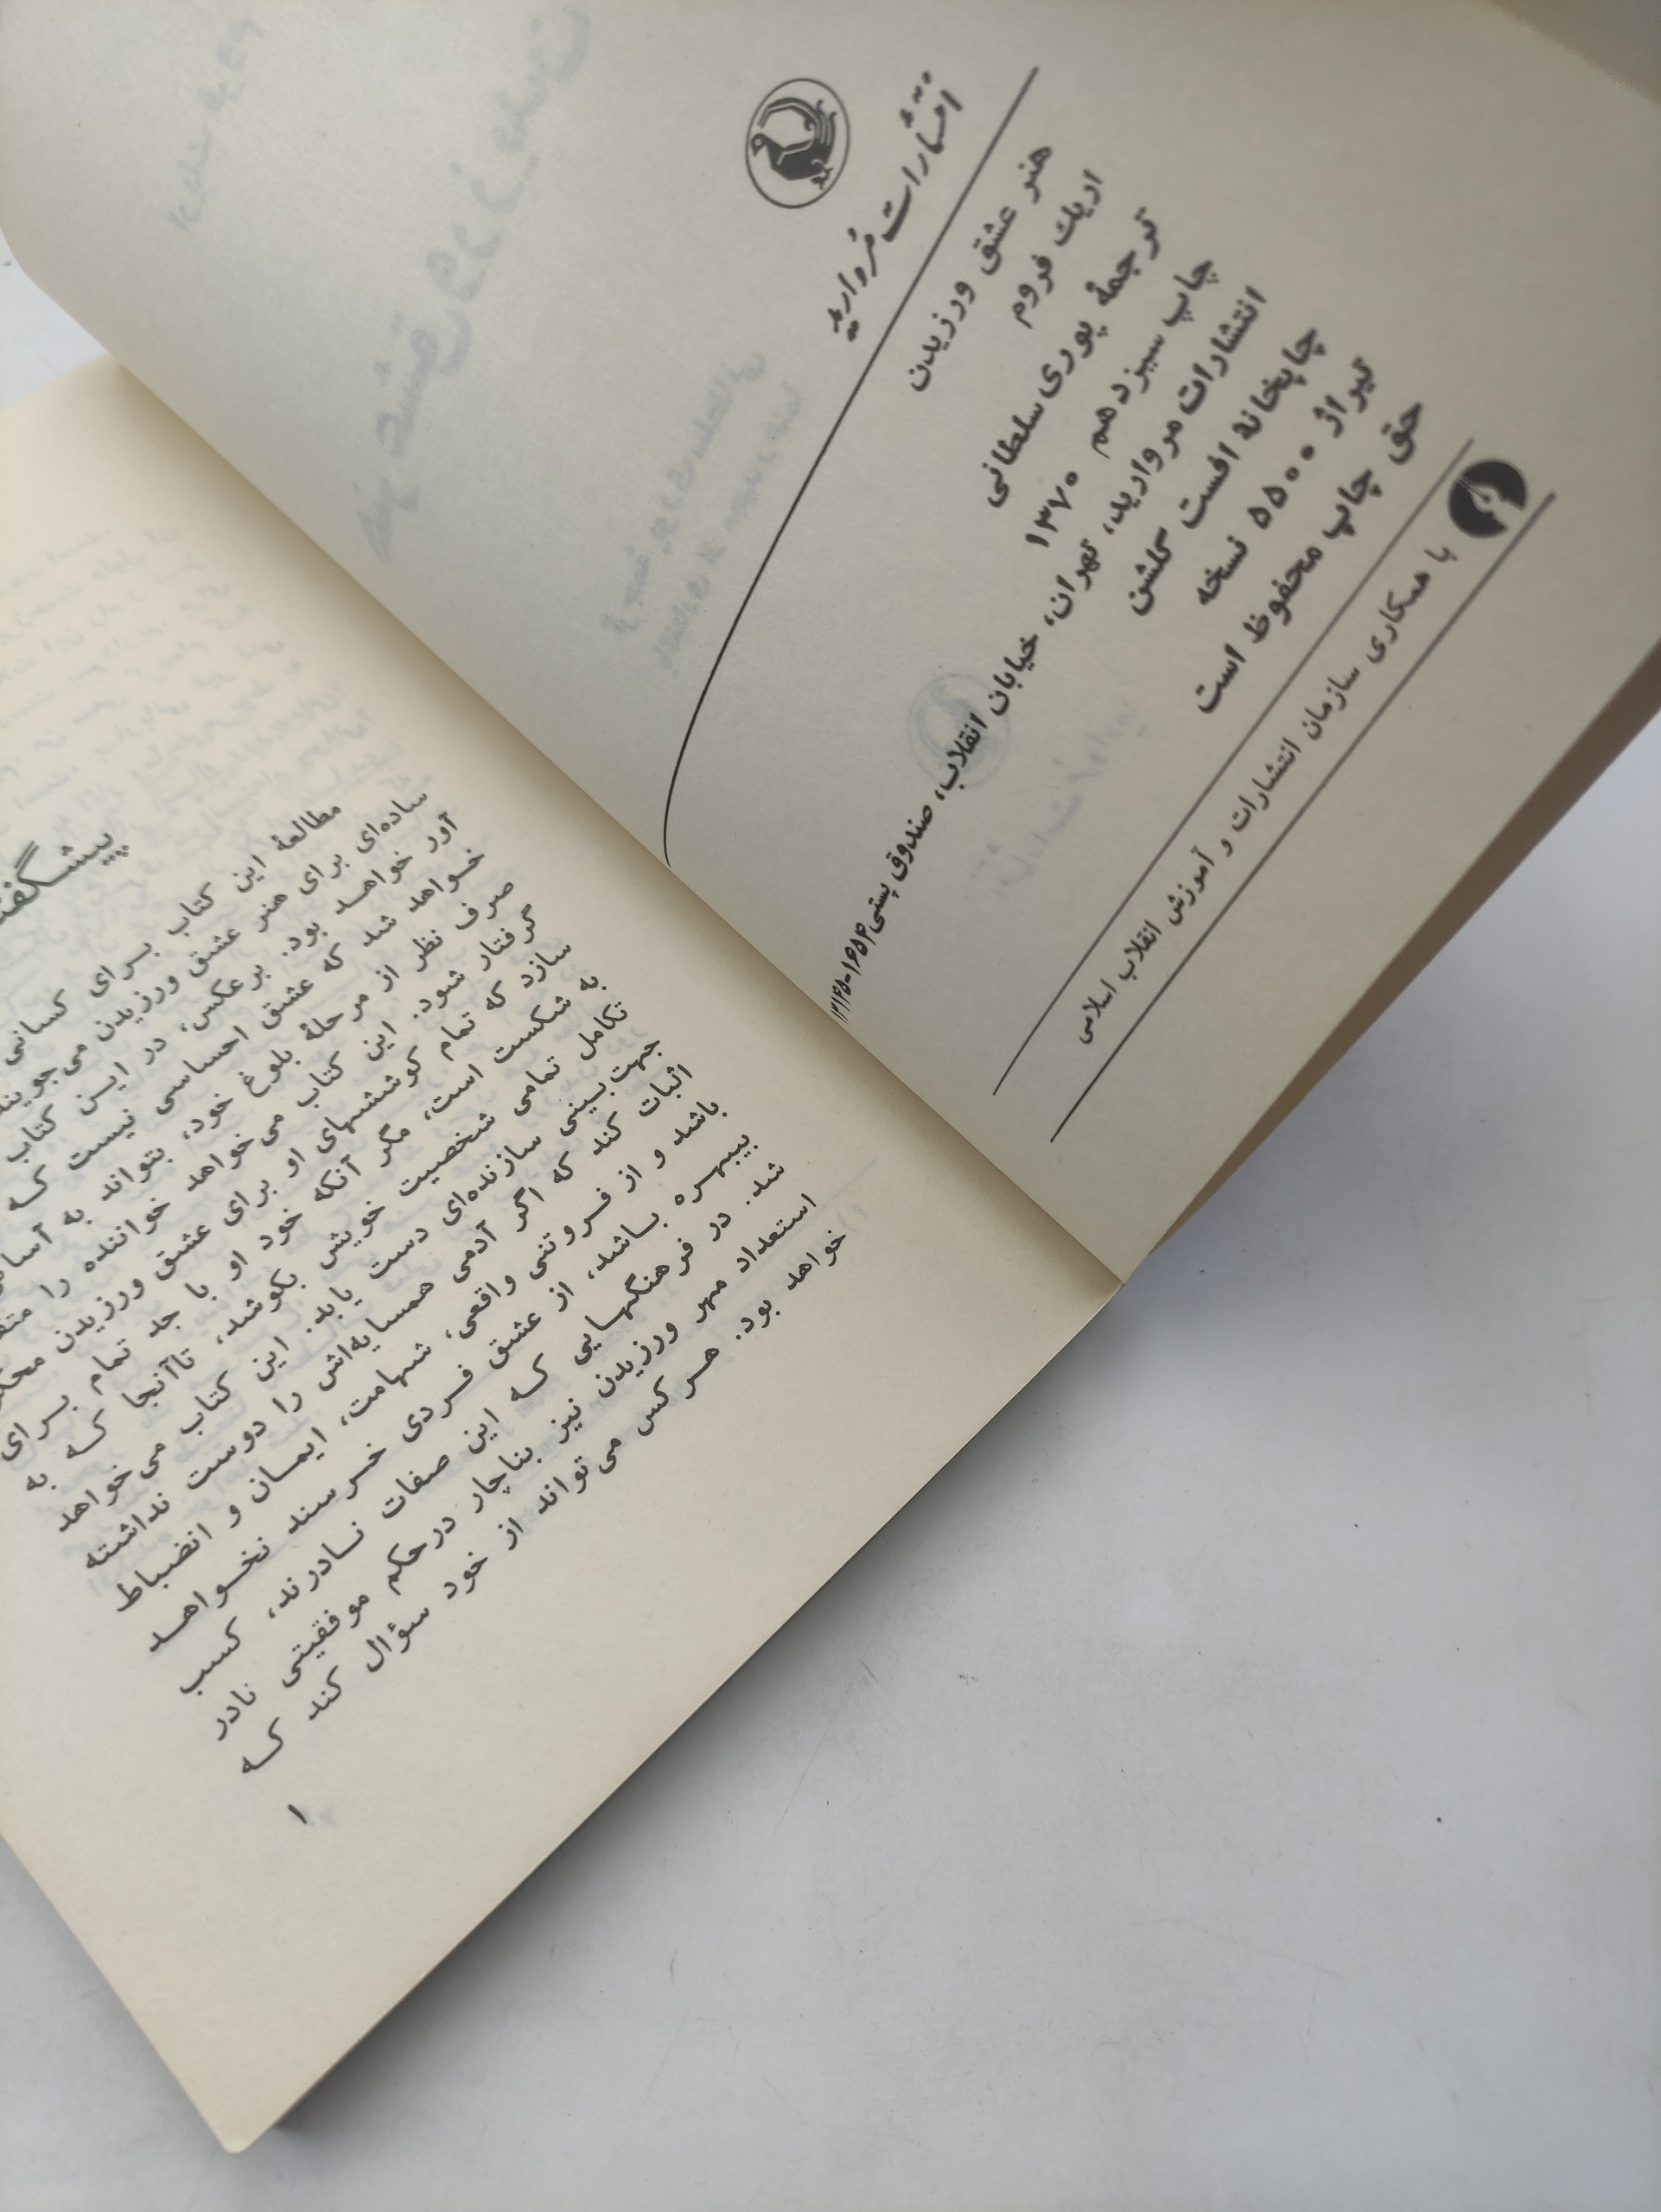 انتشارات مروارید
هنر عشق ورزیدن
اریك فروم
ترجمهٔ پوری سلطانی
چاپ سیزدهم ۱۳۷۰
انتشارات مروارید، تهران، خیابان انقلاب، صندوق پستی ۱۶۵۴-۱۳۱۴۵
چاپخانه افست گلشن
تیراژ ۵۵۰۰ نسخه
حق چاپ محفوظ است
با همکاری سازمان انتشارات و آموزش انقلاب اسلامی
مطالعهٔ این کتاب برای کسانی
ساده‌ای برای هنر عشق ورزیدن می‌جویند
آور خواهد بود. برعکس، در این کتاب
خواهد شد که عشق احساسی نیست که
صرف نظر از مرحلهٔ بلوغ خود، بتواند به
گرفتار شود. این کتاب می‌خواهد خواننده را
سازد که تمام کوششهای او برای عشق ورزیدن
به شکست است، مگر آنکه خود او با جد تمام برای
تکامل تمامی شخصیت خویش بکوشد، تاآنجا که به
جهت‌بینی سازنده‌ای دست یابد. این کتاب می‌خواهد
اثبات کند که اگر آدمی همسایه‌اش را دوست نداشته
باشد و از فروتنی واقعی، شهامت، ایمان و انضباط
بیبهره باشد، از عشق فردی خرسند نخواهد
شد. در فرهنگهایی که این صفات نادرند، کسب
استعداد مهر ورزیدن نیز بناچار درحکم موفقیتی نادر
خواهد بود. هر کس می‌تواند از خود سؤال کند که
۱